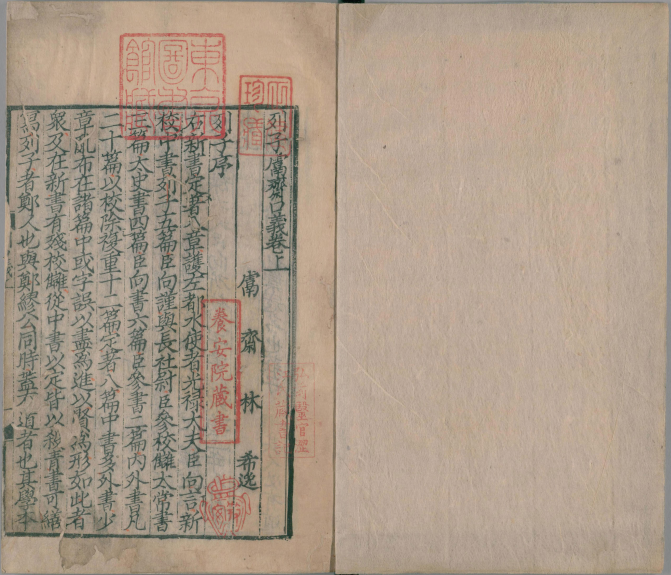 列子鬳齋口義卷上
鬳齋 林 希逸
列子序
右新書定著八章護左都水使者光祿大夫臣向言所
校中書列子五篇臣向謹與長社尉臣參校讎太常書
三篇太史書四篇臣向書六篇臣參書二篇內外書凡
二十篇以校除復重十二篇定著八篇中書多外書少
章亂布在諸篇中或字誤以盡爲進以賢爲形如此者
衆及在新書有殘校讎從中書以定皆以殺靑書可繕
寫列子者鄭人也與鄭繆公同時蓋有道者也其學本
養安院藏書
東京圖書館藏